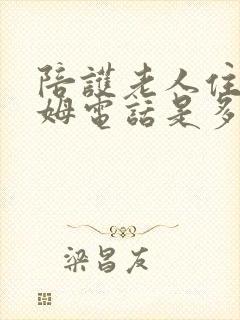 陪護老人住
姆電話是多
梁昌友